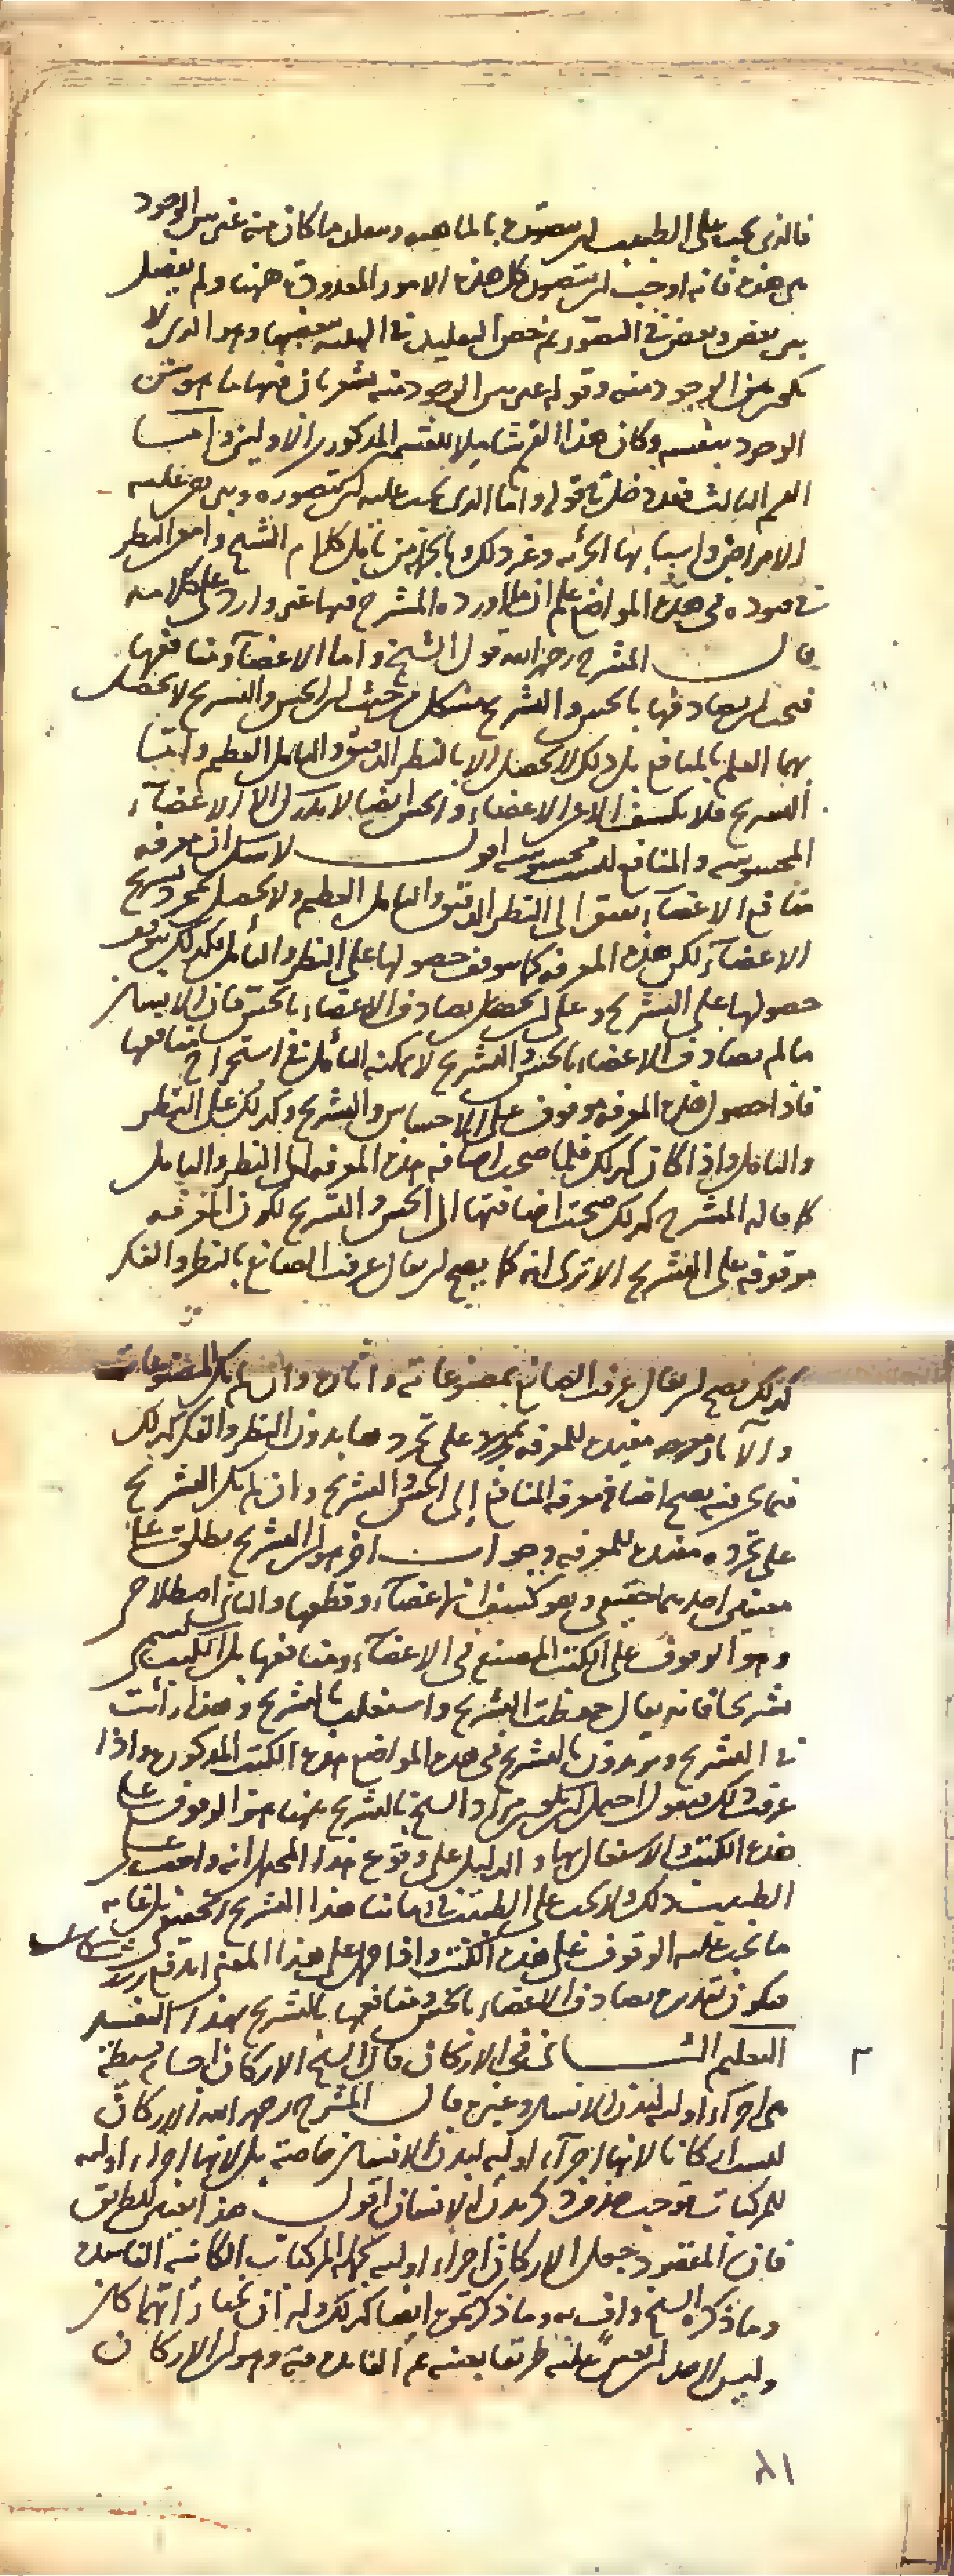 فالذى يجب على الطبيب ان يتصوره بالماهية ويصدق ما كان منه غير بين الوجود
من هذه فانه اوجب ان يتصور كل هذه الامور المعدودة ههنا ولم يفصل
بين بعض وبعض فى التصور ثم خص التصديق فى الهلية ببعضها وهو الذى لا
يكون بين الوجود منه وقوله غير بين الوجود منه يشعر بان فيها ما هو بين
الوجود بنفسه وكان هذا القسم شاملا للقسمين المذكورين الاولين واما
القسم الثالث فقد دخل فى قوله واما الذى يجب عليه ان يتصوره ويبرهن عليه
الامراض واسبابها الجزئية وغير ذلك وبالجملة من تامل كلام الشيخ وامعن النظر
فى قيوده فى هذه المواضع علم ان ما اورده المشرح فيها غير وارد على كلامه
قال المشرح رحمه الله قول الشيخ واما الاعضاء ومنافعها
فيجب ان يصادفها بالحس والتشريح مشكل من حيث ان الحس والتشريح لا يحصل
بهما العلم بالمنافع بل ذلك لا يحصل الا بالنظر الدقيق والتامل العظيم واما
التشريح فلا يكشف الا عن الاعضاء والحس ايضا لا يدرك الا الاعضاء
المحسوسة والمنافع ليست محسوسة اقول لا شك ان معرفة
منافع الاعضاء يفتقر الى النظر الدقيق والتامل العظيم ولا يحصل بمجرد تشريح
الاعضاء لكن هذه المعرفة كما يتوقف حصولها على النظر والتأمل فكذلك يتوقف
حصولها على التشريح وعلى ان يحصل بصادف الاعضاء بالحس فان الانسان
ما لم يصادف الاعضاء بالحس والتشريح لا يمكنه التأمل فى استخراج منافعها
فاذا حصول هذه المعرفة موقوف على الاحساس والتشريح وكذلك على النظر
والتامل واذا كان كذلك فكما صحت اضافة هذه المعرفة الى النظر والتامل
كما قاله المشرح كذلك صحت اضافتها الى الحس والتشريح لكون المعرفة
موقوفة على التشريح الا ترى انه كما يصح ان يقال عرفت الصانع بالنظر والفكر
كذلك يصح ان يقال عرفت الصانع بمصنوعاته واثاره وان لم تكن المصنوعات
والآثار مفيدة للمعرفة على تجردها بدون النظر والفكر كذلك
فيما نحن فيه يصح اضافة معرفة المنافع الى الحس والتشريح وان لم يكن التشريح
على تجرده مفيدا للمعرفة وجواب اخر وهو ان التشريح يطلق على
معنيين احدهما حقيقى وهو كشف الاعضاء وقطعها والثانى اصطلاحى
وهو الوقوف على الكتب المصنفة فى الاعضاء ومنافعها بل الكتب تسمى
تشريحا فانه يقال حفظت التشريح واستغلت بالتشريح وهذا رأيت
فى التشريح ويريدون بالتشريح فى هذه المواضع هذه الكتب المذكورة واذا
عرفت ذلك فنقول احتمل ان يكون مراد الشيخ بالتشريح ههنا هو الوقوف على
هذه الكتب والاشتغال بها والدليل على وقوع هذا المحمل انه واجب على
الطبيب ذلك ولا يجب على الطبيب فى زماننا هذا التشريح الحقيقى بل غاية
ما يجب عليه الوقوف على هذه الكتب واذا حمل على هذا المعنى اندفع
فيكون تقديره يصادف الاعضاء بالحس ومنافعها بالتشريح بهذا التفسير
التعليم الثانى فى الاركان قال الشيخ الاركان اجسام بسيطة
هى اجزاء اولية لبدن الانسان وغيره قال المشرح رحمه الله الاركان
ليست اركانا لانها اجزاء اولية لبدن الانسان خاصة بل لانها اجزاء اولية
للمركبات فوجب حذف ذكر بدن الانسان اقول هذا ايضا كالسابق
فان المقصود جعل الاركان اجزاء اولية لجملة المركبات الكائنة الفاسدة
وما ذكره الشيخ واف به وما ذكرتموه ايضا كذلك وله ان يختار ايهما كان
وليس لاحد ان يعين عليه طريقا بعينه ثم الفائدة فيه وهو ان الاركان
٨١